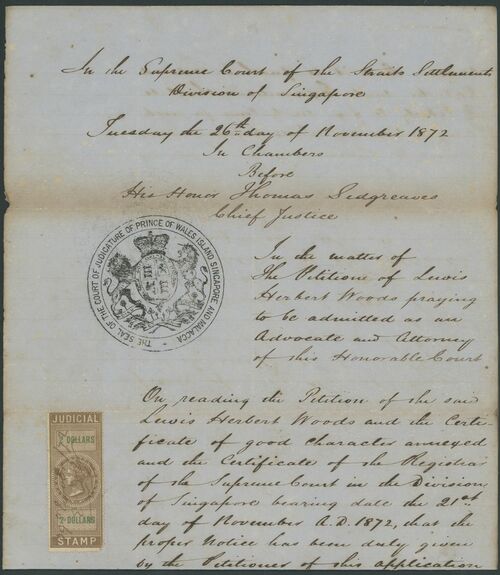 In the Supreme Court of the Straits Settlements
Division of Singapore
Tuesday the 26th day of November 1872
In Chambers
Before
His Honor Thomas Sidgreaves
Chief Justice
THE SEAL OF THE COURT OF JUDICATURE OF PRINCE OF WALES ISLAND SINGAPORE AND MALACCA
In the matter of
The Petitione of Lewis
Herbert Woods praying
to be admitted as an
Advocate and Attorney
of this Honorable Court
On reading the Petition of the said
Lewis Herbert Woods and the Certi-
ficate of good character annexed
and the Certificate of the Registrar
of the Supreme Court in the Division
of Singapore bearing date the 21st
day of November A.D. 1872, that the
proper notice has been duly given
by the Petitioner of this application
JUDICIAL
2 DOLLARS
2 DOLLARS
STAMP